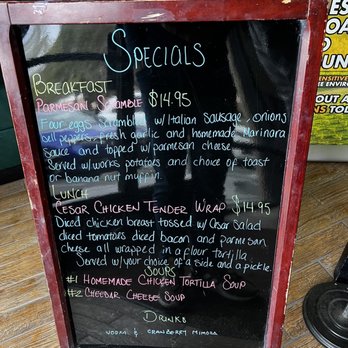 Specials
Breakfast
Parmesan Scramble $14.95
Four eggs scrambled w/Italian sausage, onions
bell peppers, fresh garlic and homemade Marinara
sauce and topped w/parmesan cheese.
Served w/works potatoes and choice of toast
or banana nut muffin.
Lunch
Cesar Chicken Tender Wrap $14.95
Diced chicken breast tossed w/Cesar Salad
diced tomatoes diced bacon and parmesan
cheese all wrapped in a flour tortilla
Served w/your choice of a side and a pickle.
Soups
#1 Homemade Chicken Tortilla Soup
#2 Cheddar Cheese Soup
Drinks
Vodka & Cranberry Mimosa